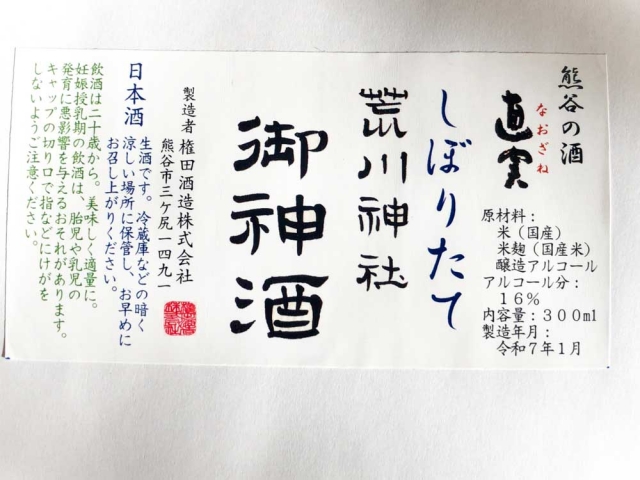 熊谷の酒
直実
なおざね
原材料：
米（国産）
米麹（国産米）
醸造アルコール
アルコール分：
１６％
内容量：３００ml
製造年月：
令和７年１月
しぼりたて
荒川神社
御神酒
製造者 権田酒造株式会社
熊谷市三ケ尻一四九一
日本酒
生酒です。冷蔵庫などの暗く
涼しい場所に保管し、お早めに
お召し上がりください。
飲酒は二十歳から。美味しく適量に。
妊娠授乳期の飲酒は、胎児や乳児の
発育に悪影響を与えるおそれがあります。
キャップの切り口で指などにけがを
しないようご注意ください。